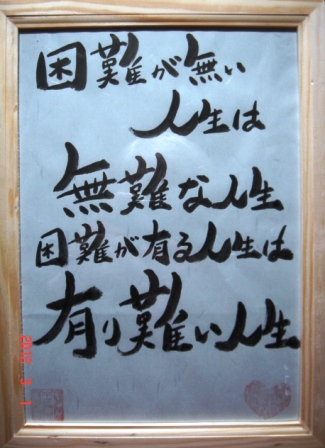 困難が無い
人生は
無難な人生
困難が有る人生は
有り難い人生